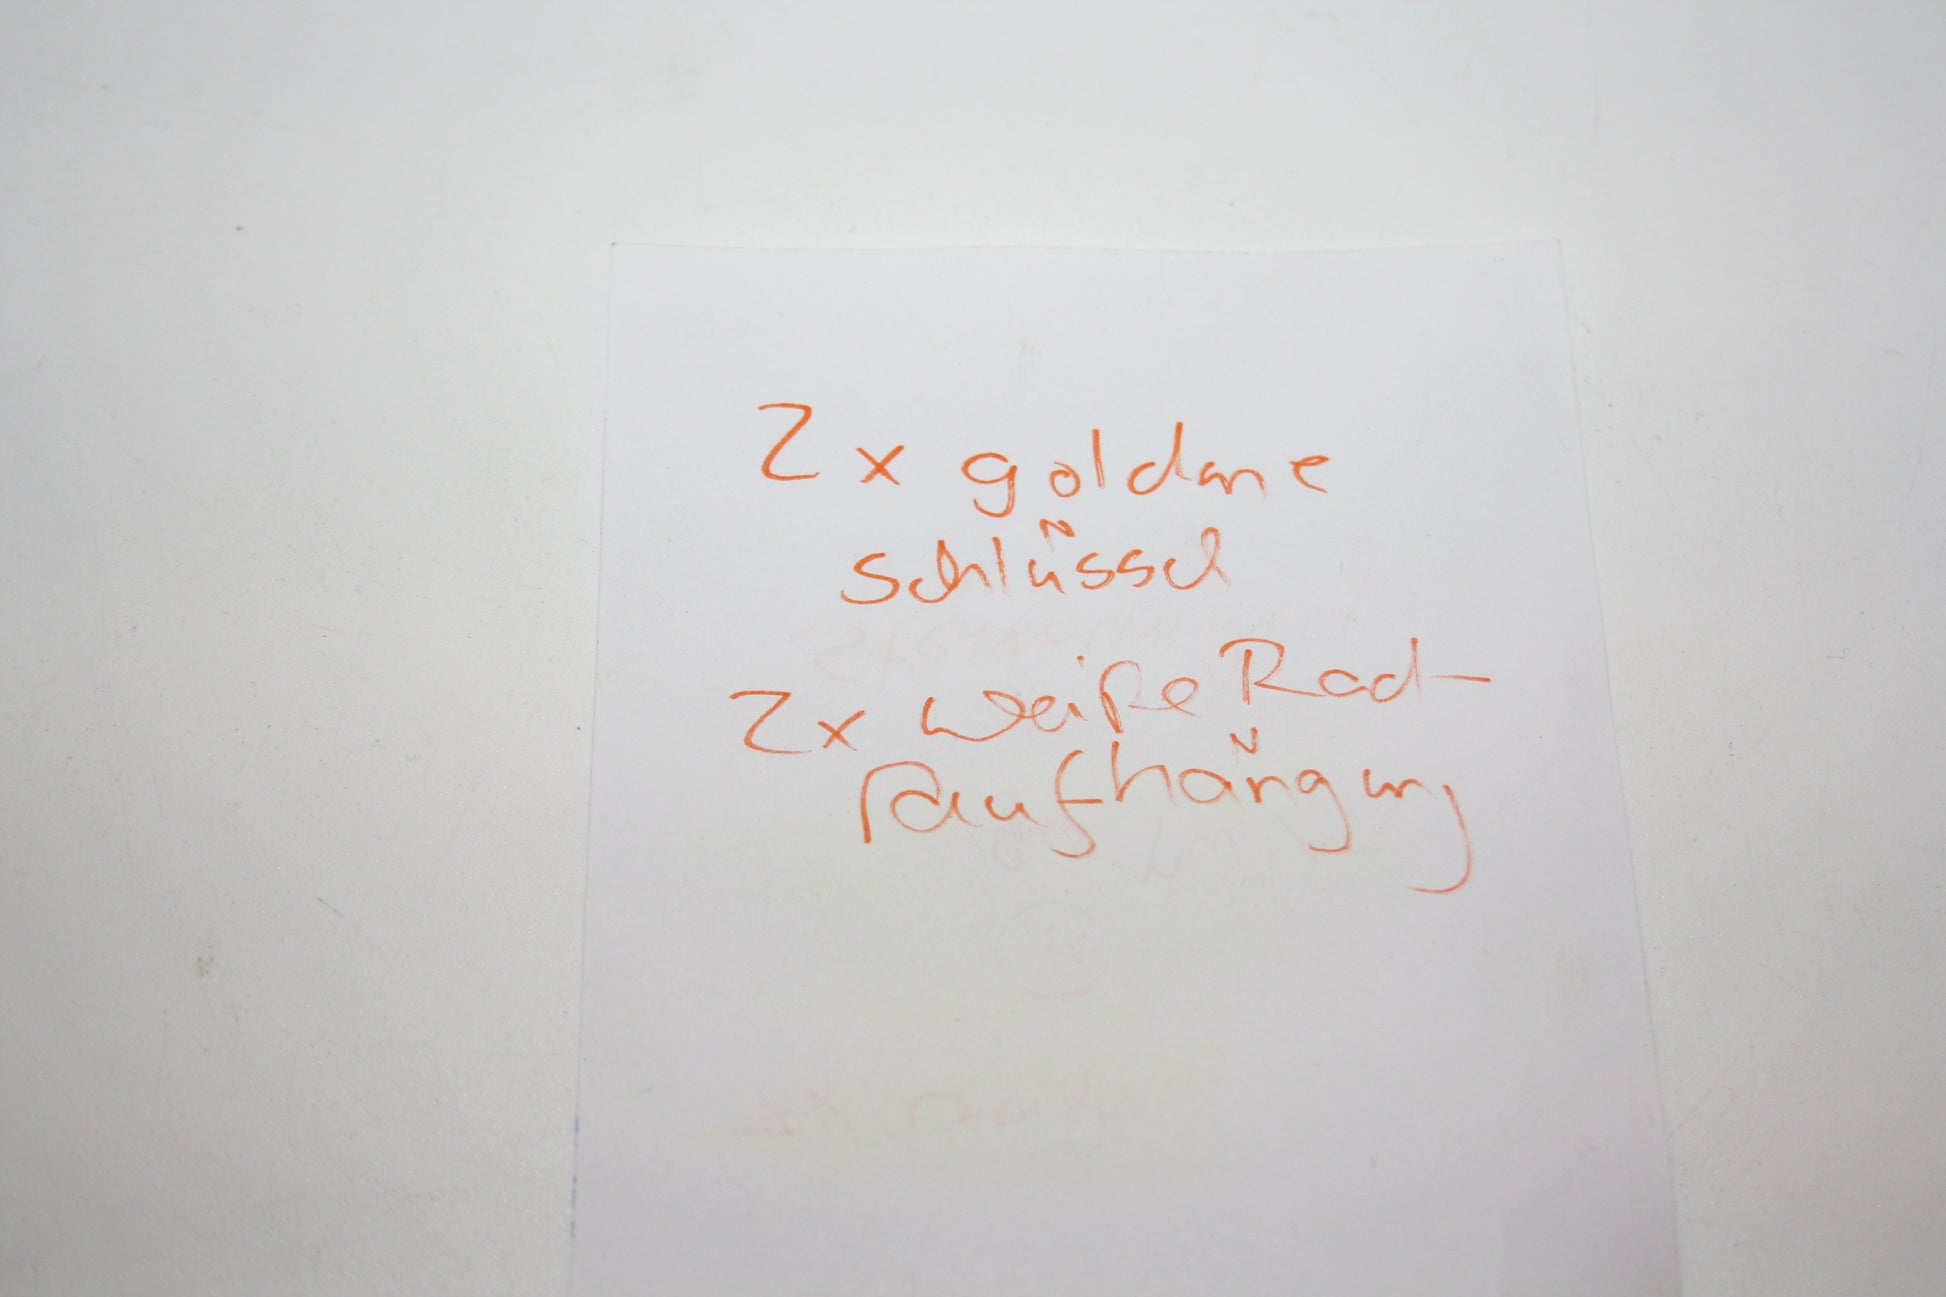 2 x goldene
Schlüssel
2x weiße Rad-
aufhängung